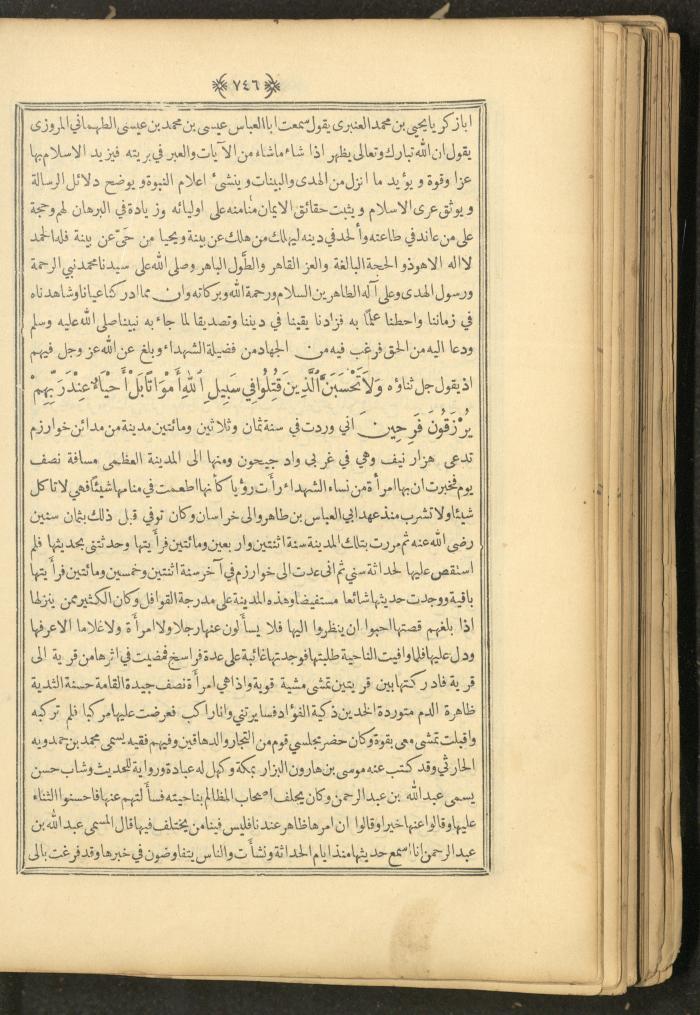 ٧٤٦
ابازكريا يحيى بن محمد العنبرى يقول سمعت ابا العباس عيسى بن محمد بن عيسى الطهمانى المروزى
يقول ان الله تبارك وتعالى يظهر اذا شاء ماشاء من الآيات والعبر في بريته فيزيد الاسلام بها
عزا وقوة ويؤيد ما انزل من الهدى والبينات وينشئ اعلام النبوة ويوضح دلائل الرسالة
ويوثق عرى الاسلام ويثبت حقائق الايمان منامنه على اوليائه وزيادة في البرهان لهم وحجة
على من عاند في طاعته وألحد في دينه ليهلك من هلك عن بينة ويحيا من حىّ عن بينة فله الحمد
لااله الاهو ذو الحجة البالغة والعز القاهر والطَّول الباهر وصلى الله على سيدنا محمد نبي الرحمة
ورسول الهدى وعلى آله الطاهرين السلام ورحمة الله وبركاته وان مما ادركنا عيانا وشاهدناه
في زماننا واحطنا علمًا به فزادنا يقينا في ديننا وتصديقا لما جاء به نبينا صلى الله عليه وسلم
ودعا اليه من الحق فرغب فيه من الجهاد من فضيلة الشهداء وبلغ عن الله عز وجل فيهم
اذ يقول جل ثناؤه وَلَا تَحْسَبَنَّ ٱلَّذِينَ قُتِلُوا فِي سَبِيلِ ٱللهِ أَمْوَاتًا بَلْ أَحْيَاءٌ عِنْدَ رَبِّهِمْ
يُرْزَقُونَ فَرِحِينَ انى وردت في سنة ثمان وثلاثين ومائتين مدينة من مدائن خوارزم
تدعى هزار نيف وهي في غربى واد جيحون ومنها الى المدينة العظمى مسافة نصف
يوم فخبرت ان بها امرأة من نساء الشهداء رأت رؤيا كأنها اطعمت في منامها شيئا فهي لا تاكل
شيئا ولا تشرب منذ عهد ابى العباس بن طاهر والى خراسان وكان توفي قبل ذلك بثمان سنين
رضى الله عنه ثم مررت بتلك المدينة سنة اثنتين واربعين ومائتين فرأيتها وحدثتنى بحديثها فلم
استقص عليها لحداثة سنى ثم انى عدت الى خوارزم في آخر سنة اثنتين وخمسين ومائتين فرأيتها
باقية ووجدت حديثها شائعا مستفيضا وهذه المدينة على مدرجة القوافل وكان الكثير ممن ينزلها
اذا بلغهم قصتها احبوا ان ينظروا اليها فلا يسألون عنها رجلا ولا امرأة ولا غلاما الا عرفها
ودل عليها فلما وافيت الناحية طلبتها فوجدتها غائبة على عدة فراسخ فمضيت في اثرها من قرية الى
قرية فادركتها بين قريتين تمشى مشية قوية واذا هى امرأة نصف جيدة القامة حسنة البدية
ظاهرة الدم متوردة الخدين ذكية الفؤاد فسايرتني وانا راكب فعرضت عليها مركبا فلم تركبه
واقبلت تمشى معى بقوة وكان حضر مجلسى قوم من التجار والدهاقين وفيهم فقيه يسمى محمد بن حمدويه
الحارثى وقد كتب عنه موسى بن هارون البزار بمكة وكهل له عبادة ورواية للحديث وشاب حسن
يسمى عبدالله بن عبدالرحمن وكان يحلف اصحاب المظالم بناحيته فسألتهم عنها فاحسنوا الثناء
عليها وقالوا عنها خيرا وقالوا ان امرها ظاهر عندنا فليس فينا من يختلف فيها قال المسمى عبدالله بن
عبدالرحمن انا اسمع حديثها منذ ايام الحداثة ونشأت والناس يتفاوضون في خبرها وقد فرغت بالى